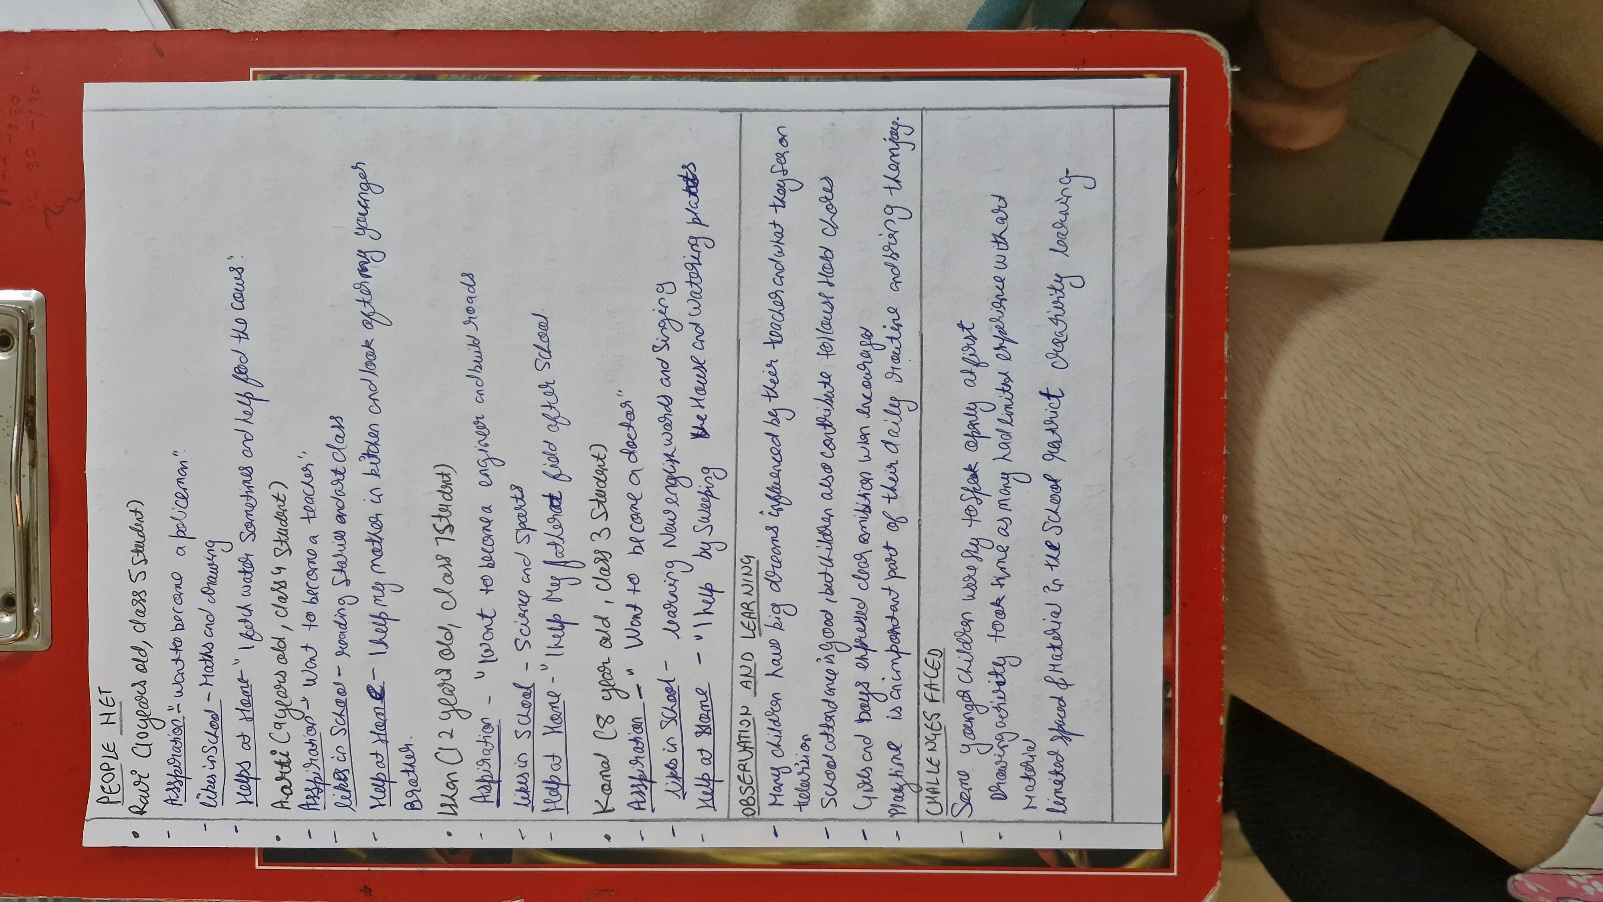 PEOPLE MET
• Ravi (10 years old, class 5 student)
- Asspiration - "want to become a policeman".
- likes in School - Maths and drawing
- Helps at Home - "I fetch water Sometimes and help feed the cows".
• Aarti (9 years old, class 4 student)
- Asspiration - "Want to become a teacher".
- likes in School - reading Stories and art class
- Help at Home - I help my mother in kitchen and look after my younger
Brother.
• Ishan (12 years old, class 7 Student)
- Asspiration - "I want to become a engineer and build roads
- likes in School - Science and Sports
- Help at Home - "I help My father at field after School
• Kamal (8 year old, class 3 Student)
- Asspiration - "Want to become a doctor"
- likes in School - learning New english words and Singing
- Help at Home - "I help by Sweeping the House and watering plants
OBSERVATION AND LEARNING
- Many children have big dreams influenced by their teacher and what they see on
television
- School attendance is good, but children also contribute to House Hold chores
- Girls and boys expressed clear ambition when encouraged
- Playtime is an important part of their daily routine and bring them joy.
CHALLENGES FACED
- Some younger children were shy to speak openly at first
- Drawing activity took time as many had limited experience with art
Material
- limited Spaced & Material in the School restrict creativity learning.